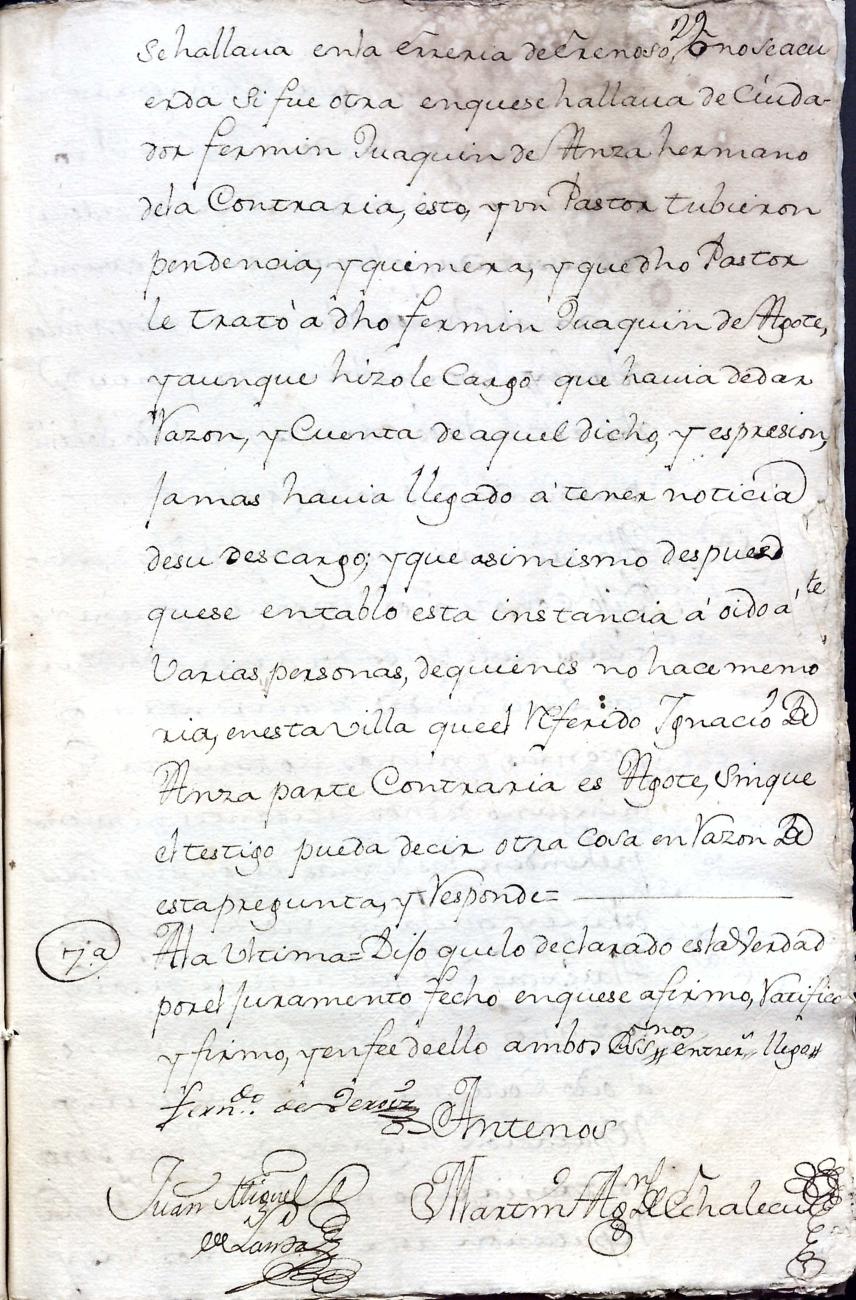 29
Se hallaua en la erreria de erenoso, no se acu
erda si fue otra enquese hallaua de Ciuda-
dor fermin Juaquin de Anza hermano
dela Contraria, esto, y vn Pastor tubieron
pendencia, y quimera, y que dho Pastor
le trató a dho fermin Juaquin de Agote,
y aunque hizole Cargo que hauia de dar
Razon, y Cuenta de aquel dicho, y espresion,
Jamas hauia llegado á tener noticia
desu Descargo; y que asimismo despues
quese entabló esta instancia á oido á
Varias personas, de quienes no hace memo
ria, enesta villa que el Referido Ignacio de
Anza parte Contraria es Agote, sinque
el testigo pueda decir otra Cosa en Razon de
esta pregunta, y Responde=
7.a Ala Vltima= Dijo quelo declarado es la Verdad
por el Juramento fecho enquese afirmo, Ratifico
y firmo, y en fee de ello ambos Essnos entrerr
ferndo de
Antenos
Juan Miguel
de Landa
Martin Agnl de Echalecu